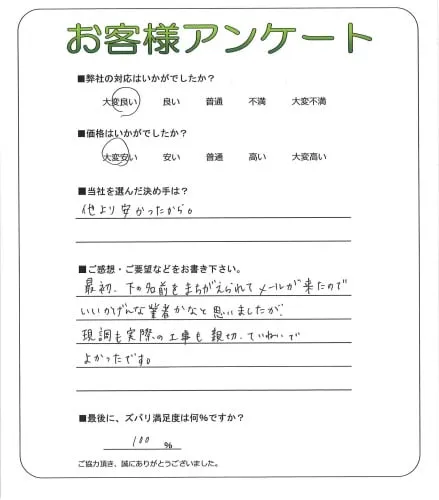 お客様アンケート
■弊社の対応はいかがでしたか？
大変良い 良い 普通 不満 大変不満
■価格はいかがでしたか？
大変安い 安い 普通 高い 大変高い
■当社を選んだ決め手は？
他より安かったから。
■ご感想・ご要望などをお書き下さい。
最初、下の名前をまちがえられてメールが来たので
いいかげんな業者かなと思いましたが、
現調も実際の工事も親切、ていねいで
よかったです。
■最後に、ズバリ満足度は何％ですか？
100 %
ご協力頂き、誠にありがとうございました。